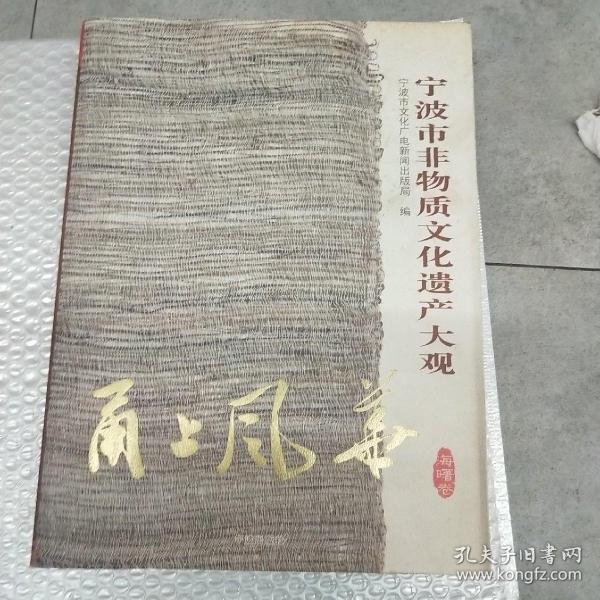 宁波市非物质文化遗产大观
宁波市文化广电新闻出版局 编
甬上风华
海曙卷
孔夫子旧书网
www.kongfz.com